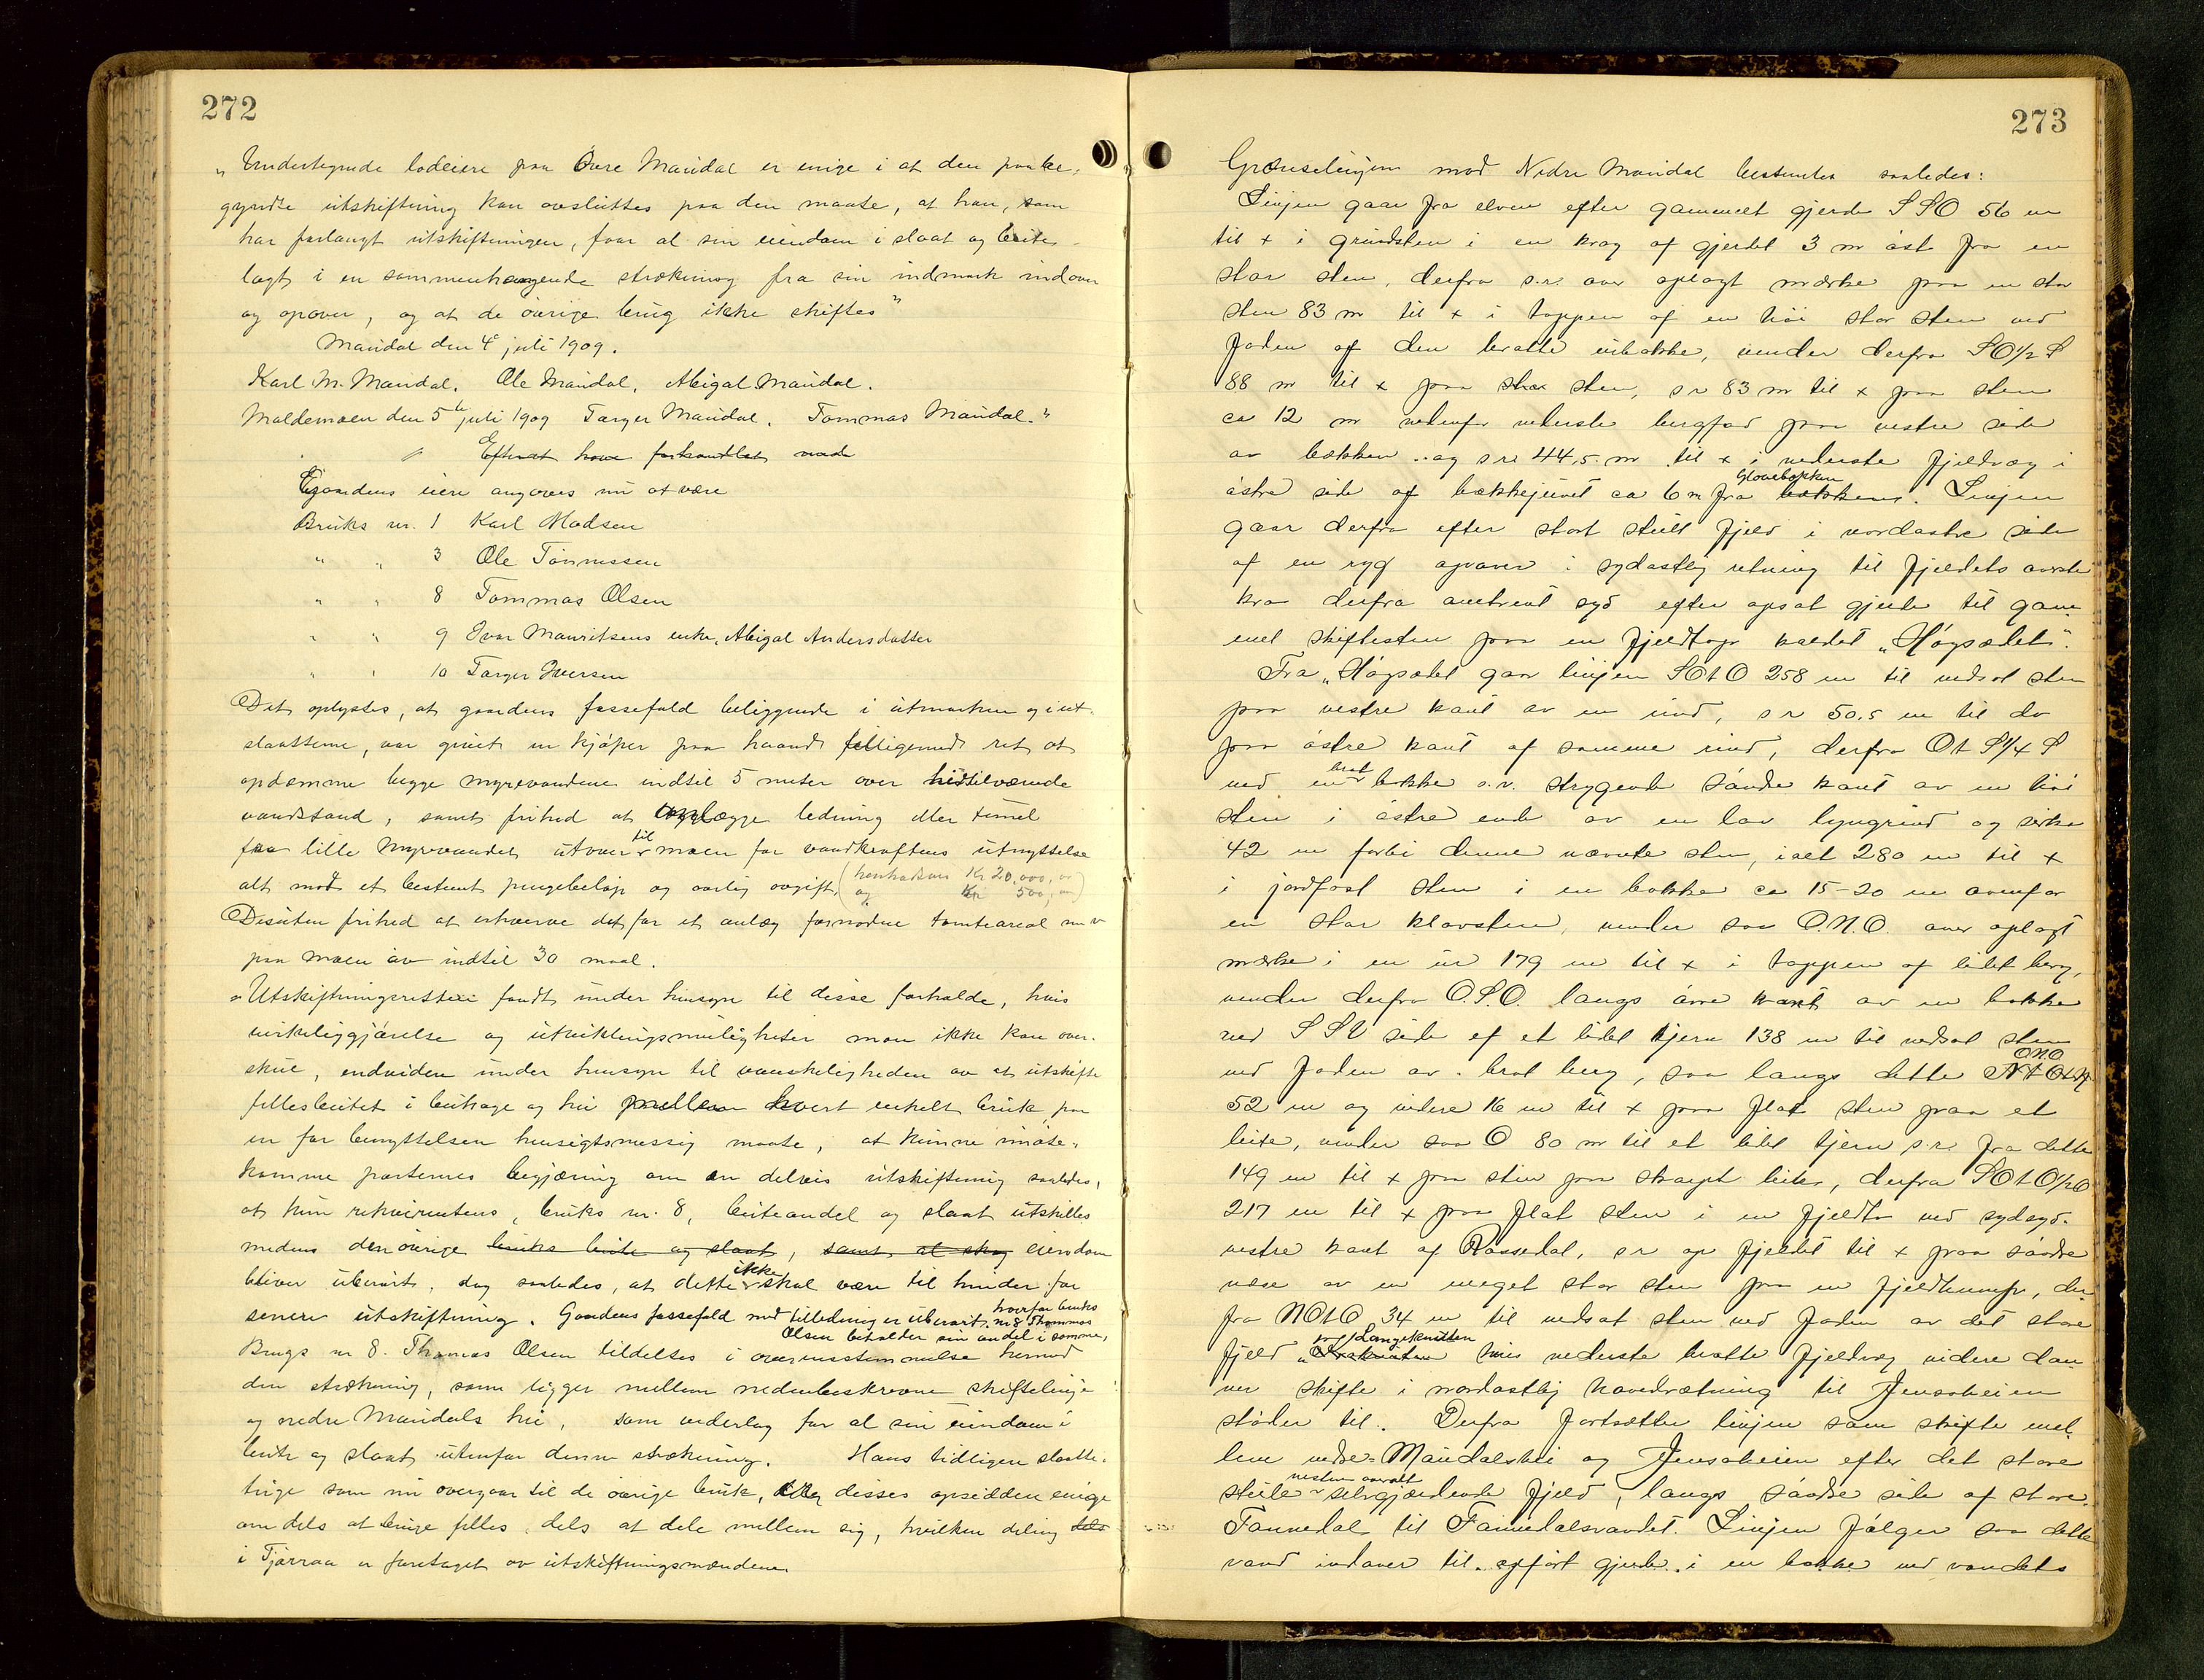 272
„Undertegnede lodeiere paa Övre Maudal er enige i at den paabe-
gyndte utskiftning kan avsluttes paa den maate, at han, som
har forlangt utskiftningen, faar al sin eiendom i slaat og beite
lagt i en sammenhængende strækning fra sin indmark indover
og opover, og at de övrige bruk ikke skiftes"
Maudal den 4de juli 1909.
Karl M. Maudal. Ole Maudal. Abigal Maudal.
Maldemoen den 5te juli 1909 Targer Maudal. Tommas Maudal."
Efterat have forhandlet med
Gaardens eiere angaves nu at være
Bruks nr. 1 Karl Madsen
" " 3 Ole Tönnessen
" " 8 Tommas Olsen
" " 9 Ivar Mauritsens enke, Abigal Andersdatter
" " 10 Targer Iversen
Det oplystes, at gaardens fossefald beliggende i utmarken og i ut-
slaatterne, var givet en kjöper paa haand tilligemed ret at
opdæmme begge myrevandene indtil 5 meter over hidtilværende
vandstand, samt frihed at legge ledning eller tunel
fra lille Myrevandet utover til moen for vandkraftens utnyttelse
alt mod et bestemt pengebeløp og aarlig avgift, (henholdsvis Kr 20.000,00
og Kr 500,00)
Desuten frihed at erhverve det for et anlæg fornødne tomteareal m v
paa moen av indtil 30 maal.
Utskiftningsretten fandt under hensyn til disse forholde, hvis
virkeliggjörelse og utviklingsmuligheter man ikke kan over-
skue, endvidere under hensyn til vanskeligheden av at utskifte
fellesbeitet i beitrage og hei mellem hvert enkelt bruk paa
en for benyttelsen hensigtsmessig maate, at kunne imöte-
komme parternes begjæring om en delvis utskiftning saaledes,
at kun rekvirentens, bruks nr. 8, beiteandel og slaat utskilles
medens den övrige bruks beite og slaat, samt al skog eiendom
bliver uberört, dog saaledes, at dette ikke skal være til hinder for
senere utskiftning. Gaardens fossefald med tilledning er uberört, hvorfor bruks
nr 8 Thommas
Olsen beholder sin andel i samme,
Brugs nr 8. Thomas Olsen tildeltes i overensstemmelse hermed
den strekning, som ligger mellem nedenbeskrevne skiftelinje
og nedre Maudals hei, som vederlag for al sin eiendom i
beite og slaat utenfor denne strekning. Hans tidligere slaatte-
teige som nu overgaar til de övrige bruk, disses opsiddere enige
om dels at bruge felles dels at dele mellem sig, hvilken deling dels
i Tjörraa er foretaget av utskiftningsmændene
273
Grænselinjen mod Nedre Maudal bestemtes saaledes:
Linjen gaar fra elven efter gammelt gjerde SSO 56 m
til x i grundsten i en krog af gjerdet 3 m öst fra en
stor sten, derfra s.r. over oplagt merke paa en stor
sten 83 m til x i toppen af en höi stor sten ved
foden af den bratte urbakke, vender derfra SO1/2 S
88 m til x paa stor sten, s r 83 m til x paa sten
ca 12 m nedenfor nederste bergfod paa vestre side
av bækken og s r 44,5 m til x i nederste fjeldvæg i
östre side af bækkejuvet ca 6 m fra Glovebækken bækken. Linjen
gaar derfra efter stort steilt fjeld i nordöstre side
af en ryg opover i sydöstlig retning til fjeldets överste
kro derfra omtrent syd efter opsat gjerde til gam-
mel skiftesten paa en fjeldtop kaldet „Högsætet".
Fra „Högsætet gaar linjen SOtO 258 m til nedsat sten
paa vestre kant av en rind, s r 50.5 m til do
paa östre kant af samme rind, derfra OtS1/4 S
ned en brat bakke s.r. strygende söndre kant av en höi
sten i östre ende av en lav lyngrind og cirka
42 m forbi denne nævnte sten, ialt 280 m til x
i jordfast sten i en bakke ca 15-20 m ovenfor
en stor klovsten, vender saa O.N.O. over oplagt
merke i en ur 179 m til x i toppen af lidet berg,
vender derfra O.S.O. langs övre kant av en bakke
ved SSV side af et lidet tjern 138 m til nedsat sten
ved foden av brat berg, saa langs dette ONO NtOtN
52 m og videre 16 m til x paa flat sten paa et
leite, vender saa O 80 m til et lidet tjern s.r. fra dette
149 m til x paa sten paa skarpt leite, derfra SOtO1/2O
217 m til x paa flat sten i en fjeldto ved sydsyd-
vestre kant af Rossedal, s r op fjeldet til x paa söndre
nese av en meget stor sten paa en fjeldkump, der-
fra NOtO 34 m til nedsat sten ved foden av det store
fjeld Langeknuten hvis nederste bratte fjeldvæg videre dan-
ner skifte i nordöstlig hovedretning til Jensaheien
støder til. Derfra fortsætter linjen som skifte mel-
lem nedre Maudalshei og Jensaheien efter det store
steile næsten overalt selvgjærdende fjeld, langs söndre side af store
Fannedal til Fannedalsvandet. Linjen fölger saa dette
vand indover til opfört gjerde i en bakke ved vandets